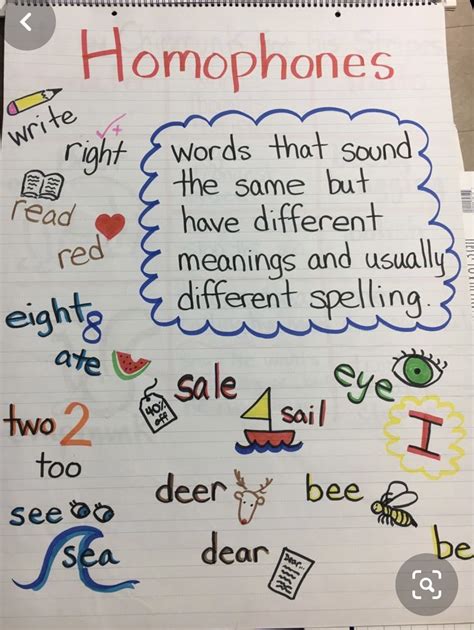 Homophones
write
right
words that sound
the same but
have different
meanings and usually
different spelling.
read
red
eight 8
ate
sale
40% off
sail
eye
I
two 2
too
deer
bee
see
sea
dear
Dear...
be